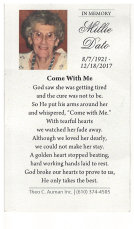 IN MEMORY
Millie
Dato
8/7/1921 -
12/18/2017
Come With Me
God saw she was getting tired
and the cure was not to be.
So He put his arms around her
and whispered, "Come with Me."
With tearful hearts
we watched her fade away.
Although we loved her dearly,
we could not make her stay.
A golden heart stopped beating,
hard working hands laid to rest.
God broke our hearts to prove to us,
He only takes the best.
Theo C. Auman Inc. | (610) 374-4505